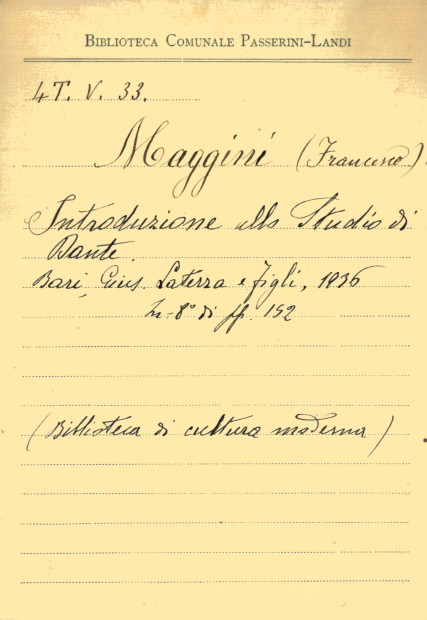 BIBLIOTECA COMUNALE PASSERINI-LANDI
4T. V. 33.
Maggini (Francesco).
Introduzione allo Studio di
Dante.
Bari, Gius. Laterza e figli, 1936
In-8° di pp. 152
(Biblioteca di cultura moderna)